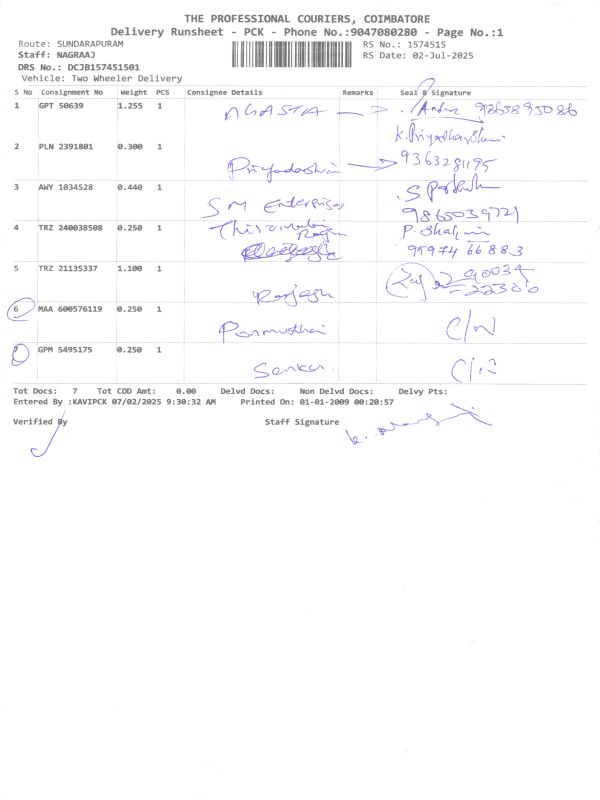 THE PROFESSIONAL COURIERS, COIMBATORE
Delivery Runsheet - PCK - Phone No.:9047080280 - Page No.:1
Route: SUNDARAPURAM RS No.: 1574515
Staff: NAGRAAJ RS Date: 02-Jul-2025
DRS No.: DCJB157451501
Vehicle: Two Wheeler Delivery
S No Consignment No Weight PCS Consignee Details Remarks Seal & Signature
1 GPT 50639 1.255 1
2 PLN 2391801 0.300 1 Priyadarshini
3 AWY 1034528 0.440 1 SM Enterprises
4 TRZ 240038508 0.250 1 95974 66883
5 TRZ 21135337 1.100 1 Rajesh
6 MAA 600576119 0.250 1 Ponmuthai
7 GPM 5495175 0.250 1 Sankar
Tot Docs: 7 Tot COD Amt: 0.00 Delvd Docs: Non Delvd Docs: Delvy Pts:
Entered By :KAVIPCK 07/02/2025 9:30:32 AM Printed On: 01-01-2009 00:20:57
Verified By Staff Signature